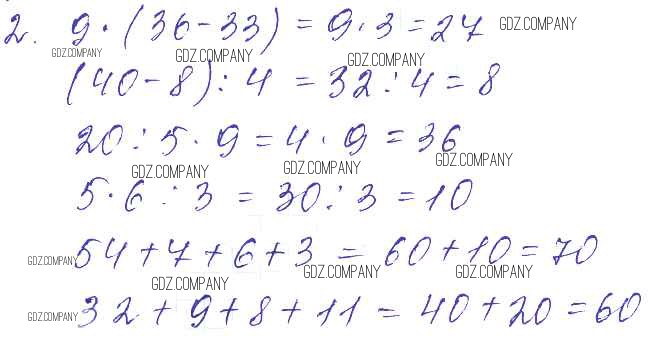 2. 9 · (36 - 33) = 9 · 3 = 27 GDZ.COMPANY
GDZ.COMPANY GDZ.COMPANY GDZ.COMPANY
(40 - 8) : 4 = 32 : 4 = 8
20 : 5 · 9 = 4 · 9 = 36
GDZ.COMPANY GDZ.COMPANY GDZ.COMPANY
5 · 6 : 3 = 30 : 3 = 10
GDZ.COMPANY 54 + 7 + 6 + 3 = 60 + 10 = 70
GDZ.COMPANY GDZ.COMPANY GDZ.COMPANY
GDZ.COMPANY 32 + 9 + 8 + 11 = 40 + 20 = 60